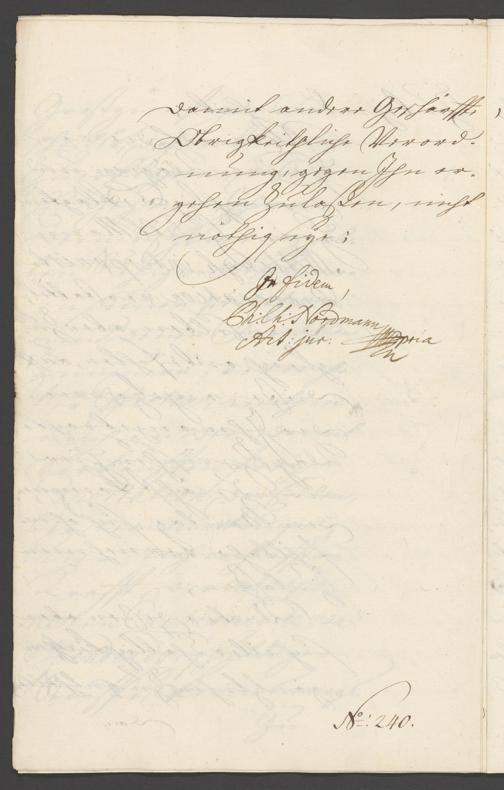 damit andere Geschärffte
Obrigkeithliche Verord-
nung, gegen Ihn er-
gehen zulaßen, nicht
nöthig seye;
In fidem,
Nordmann
jur:
No: 240.